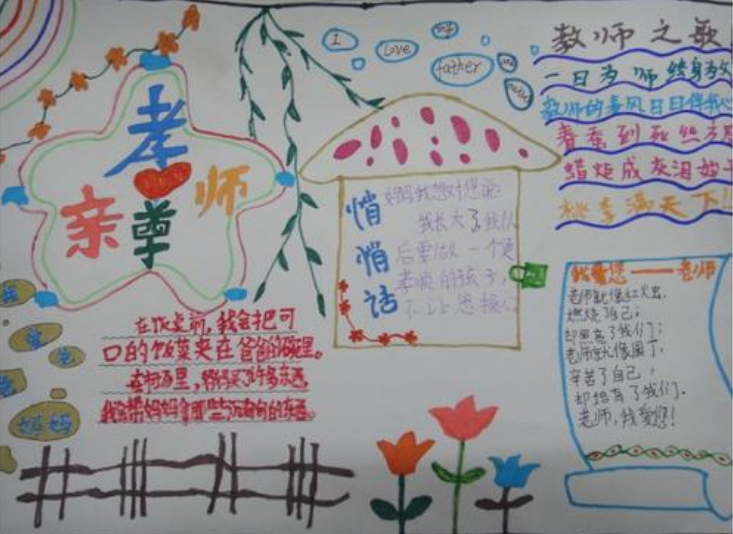 孝
亲
尊
师
I
Love
my
father
教师之歌
一日为师 终身为父
教师的春风日日伴我心
春蚕到死丝方尽
蜡炬成灰泪始干
桃李满天下!!
悄悄话
妈妈我想对您说:
我长大了,我以
后要做一个更
孝顺的孩子,
不让您操心
我爱您——老师
老师就像红火虫,
燃烧了自己;
却照亮了我们;
老师就像园丁,
辛苦了自己,
却培育了我们.
老师,我爱您!
在饭桌前,我会把可
口的饭菜夹在爸爸的碗里。
我会帮妈妈拿那些
爸
爸
妈妈